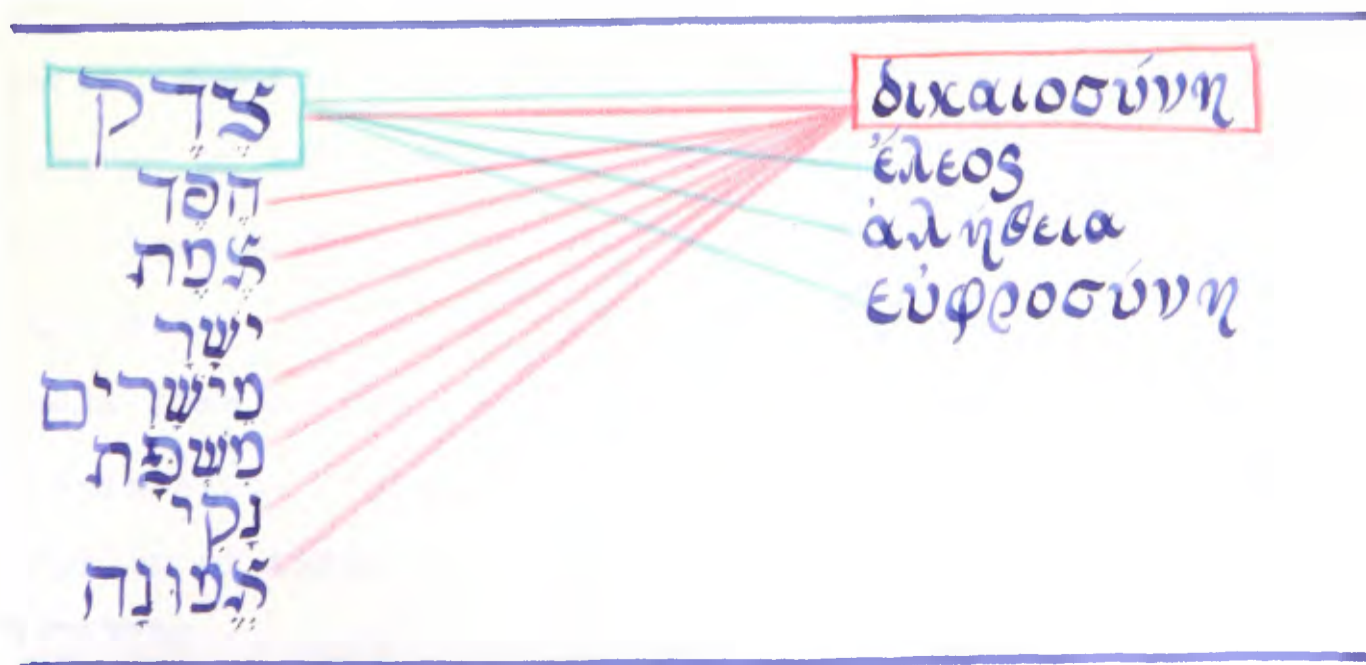 צֶדֶק
חֶסֶד
אֶמֶת
ישָׁרָ
מִישָׁרִים
מִשְׁפָּת
נָקִי
אֱמוּנָה
δικαιοσύνη
ἔλεος
ἀλήθεια
εὐφροσύνη